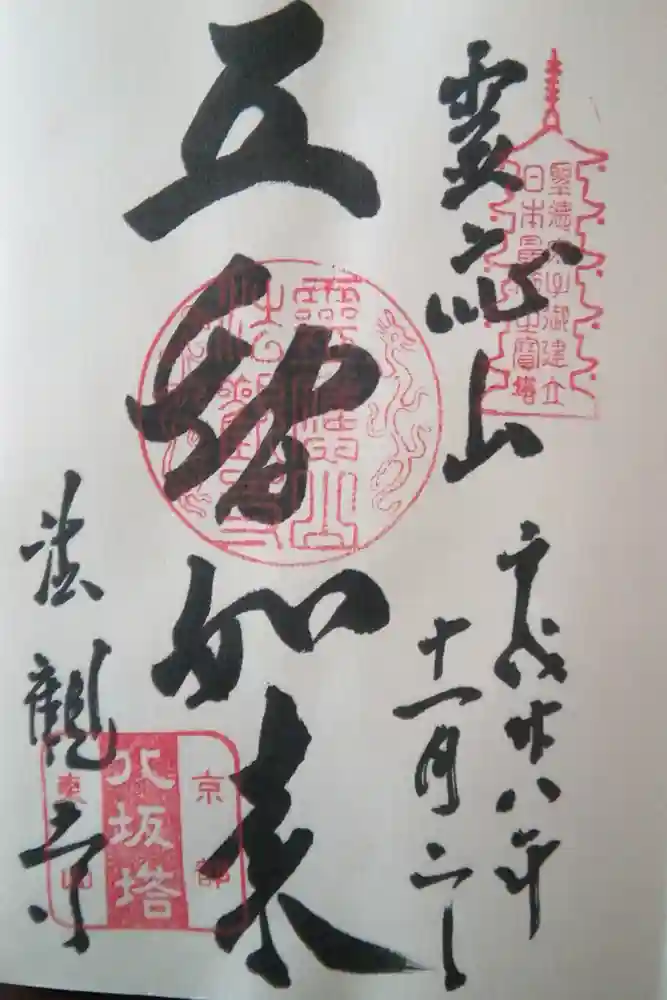 聖徳太子御建立
日本最初之寶塔
霊応山
平成廿八年
十一月
五智如来
法観寺
京都
八坂塔
東山